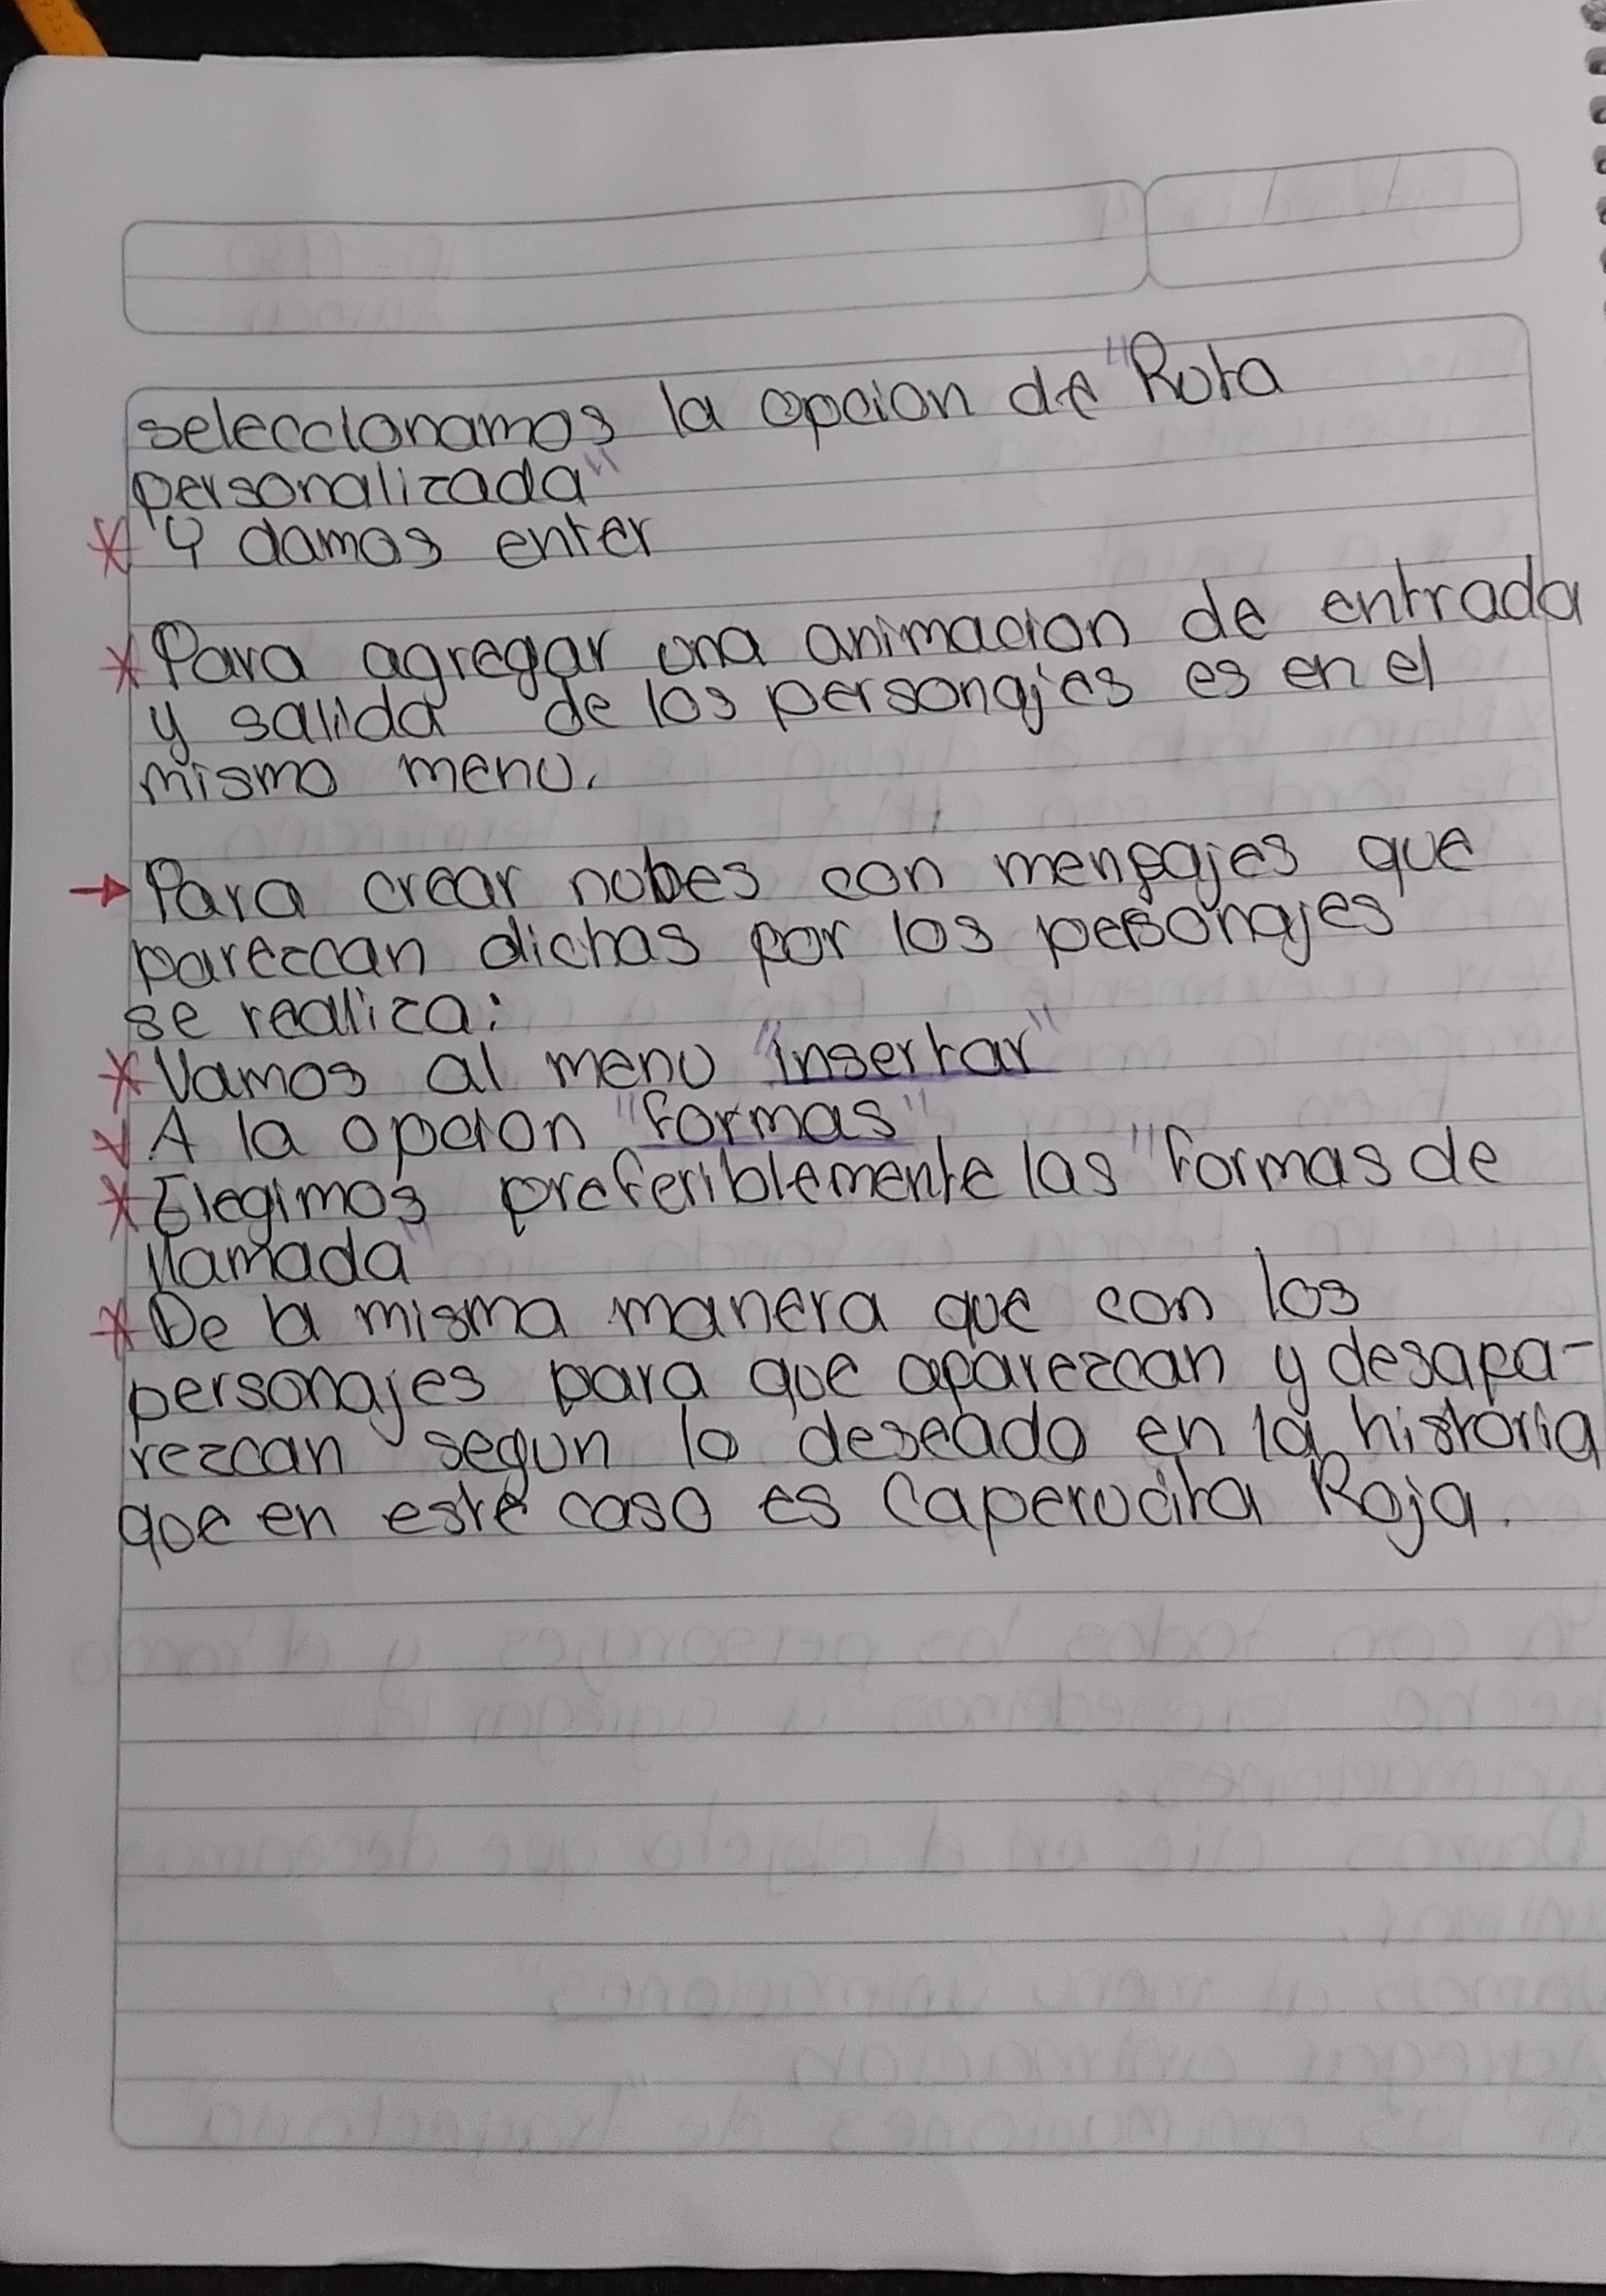 seleccionamos la opcion de "Ruta
personalizada"
* Y damos enter
* Para agregar una animacion de entrada
y salida de los personajes es en el
mismo menu.
→ Para crear nubes con mensajes que
parezcan dichas por los personajes
se realiza:
* Vamos al menu "insertar"
* A la opcion "formas"
* Elegimos preferiblemente las "formas de
llamada"
* De la misma manera que con los
personajes para que aparezcan y desapa-
rezcan segun lo deseado en la historia
que en este caso es Caperucita Roja.